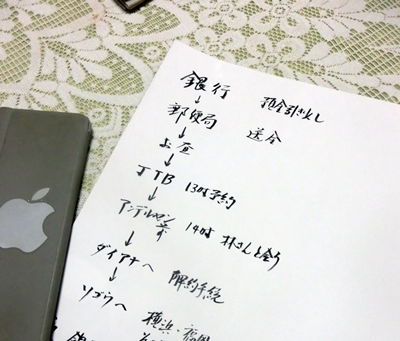 銀行 預金引き出し
↓
郵便局 送金
↓
お昼
↓
JTB 13時予約
↓
アンデルセン 14時 林さんと会う
↓
ダイアナへ 解約手続
↓
ソゴウへ 横浜・福岡